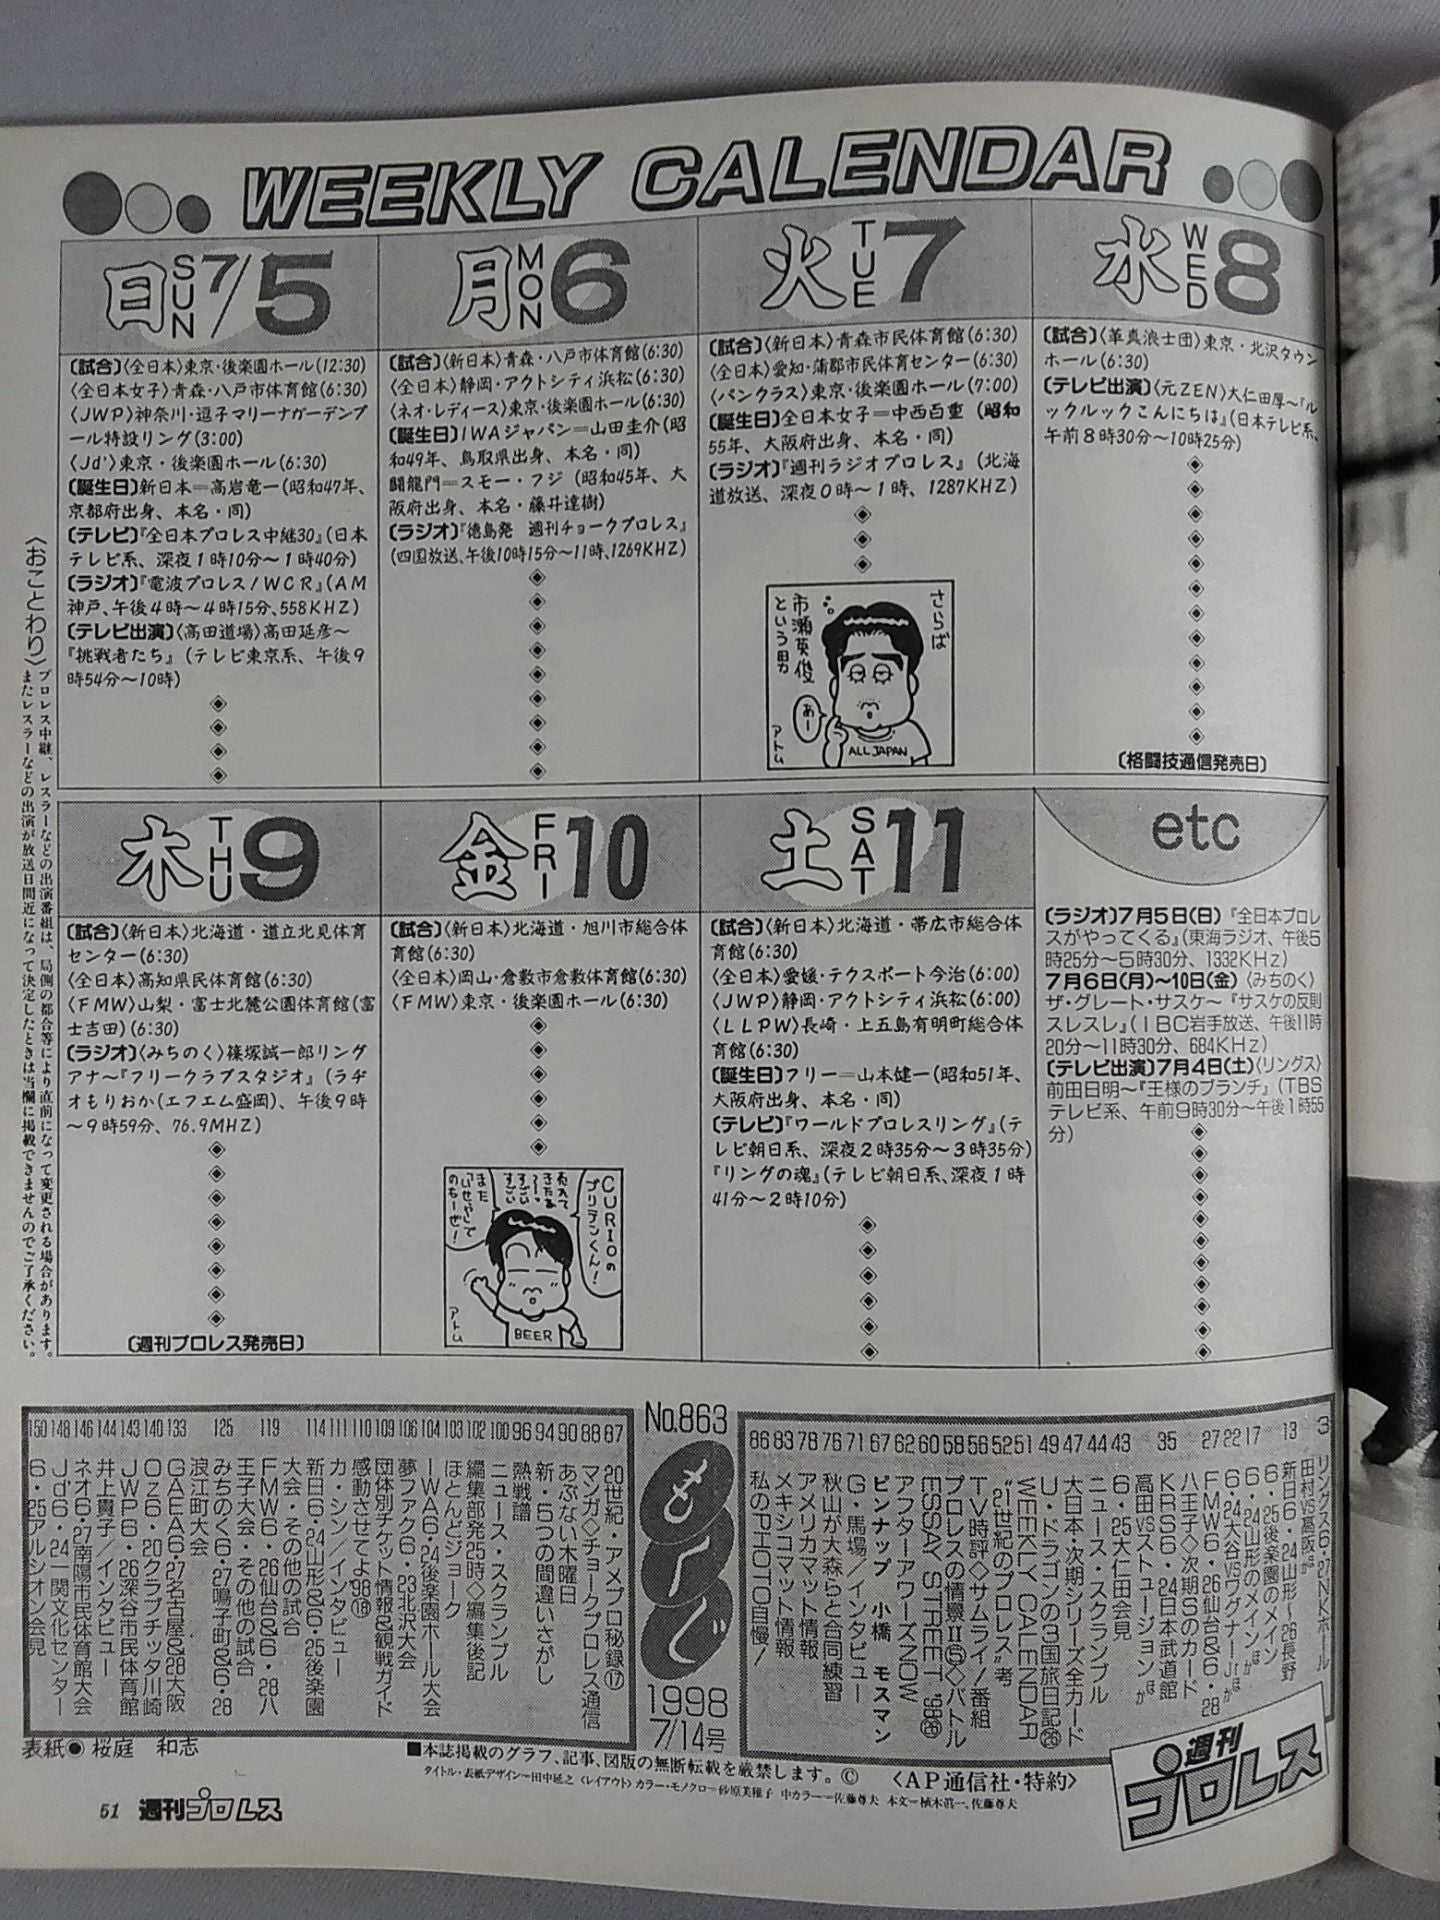 WEEKLY CALENDAR
日 SUN 7/5
〔試合〕〈全日本〉東京・後楽園ホール(12:30)
〈全日本女子〉青森・八戸市体育館(6:30)
〈JWP〉神奈川・逗子マリーナガーデンプ
ール特設リング(3:00)
〈Jd'〉東京・後楽園ホール(6:30)
〔誕生日〕新日本=高岩竜一(昭和47年、
京都府出身、本名・同)
〔テレビ〕『全日本プロレス中継30』(日本
テレビ系、深夜1時10分〜1時40分)
〔ラジオ〕『電波プロレス!WCR』(AM
神戸、午後4時〜4時15分、558KHZ)
〔テレビ出演〕〈高田道場〉高田延彦〜
『挑戦者たち』(テレビ東京系、午後9
時54分〜10時)
月 MON 6
〔試合〕〈新日本〉青森・八戸市体育館(6:30)
〈全日本〉静岡・アクトシティ浜松(6:30)
〈ネオ・レディース〉東京・後楽園ホール(6:30)
〔誕生日〕IWAジャパン=山田圭介(昭
和49年、鳥取県出身、本名・同)
闘龍門=スモー・フジ(昭和45年、大
阪府出身、本名・藤井達樹)
〔ラジオ〕『徳島発 週刊チョークプロレス』
(四国放送、午後10時15分〜11時、1269KHZ)
火 TUE 7
〔試合〕〈新日本〉青森市民体育館(6:30)
〈全日本〉愛知・蒲郡市民体育センター(6:30)
〈パンクラス〉東京・後楽園ホール(7:00)
〔誕生日〕全日本女子=中西百重(昭和
55年、大阪府出身、本名・同)
〔ラジオ〕『週刊ラジオプロレス』(北海
道放送、深夜0時〜1時、1287KHZ)
さらば
市瀬英俊
という男
あー
ALL JAPAN
アトム
水 WED 8
〔試合〕〈革真浪士団〉東京・北沢タウン
ホール(6:30)
〔テレビ出演〕〈元ZEN〉大仁田厚〜『ル
ックルックこんにちは』(日本テレビ系、
午前8時30分〜10時25分)
〔格闘技通信発売日〕
木 THU 9
〔試合〕〈新日本〉北海道・道立北見体育
センター(6:30)
〈全日本〉高知県民体育館(6:30)
〈FMW〉山梨・富士北麓公園体育館(富
士吉田)(6:30)
〔ラジオ〕〈みちのく〉篠塚誠一郎リング
アナ〜『フリークラブスタジオ』(ラヂ
オもりおか(エフエム盛岡)、午後9時
〜9時59分、76.9MHZ)
〔週刊プロレス発売日〕
金 FRI 10
〔試合〕〈新日本〉北海道・旭川市総合体
育館(6:30)
〈全日本〉岡山・倉敷市倉敷体育館(6:30)
〈FMW〉東京・後楽園ホール(6:30)
CURIOの
ブリテンくん!
また
BEER
アトム
土 SAT 11
〔試合〕〈新日本〉北海道・帯広市総合体
育館(6:30)
〈全日本〉愛媛・テクスポート今治(6:00)
〈JWP〉静岡・アクトシティ浜松(6:00)
〈LLPW〉長崎・上五島有明町総合体
育館(6:30)
〔誕生日〕フリー=山本健一(昭和51年、
大阪府出身、本名・同)
〔テレビ〕『ワールドプロレスリング』(テ
レビ朝日系、深夜2時35分〜3時35分)
『リングの魂』(テレビ朝日系、深夜1時
41分〜2時10分)
etc
〔ラジオ〕7月5日(日)『全日本プロレ
スがやってくる』(東海ラジオ、午後5
時25分〜5時30分、1332KHz)
7月6日(月)〜10日(金)〈みちのく〉
ザ・グレート・サスケ〜『サスケの反則
スレスレ』(IBC岩手放送、午後11時
20分〜11時30分、684KHz)
〔テレビ出演〕7月4日(土)〈リングス〉
前田日明〜『王様のブランチ』(TBS
テレビ系、午前9時30分〜午後1時55
分)
〈おことわり〉プロレス中継、レスラーなどの出演番組は、局側の都合等により直前になって変更される場合があります。
またレスラーなどの出演が放送日間近になって決定したときは当欄に掲載できませんのでご了承ください。
No.863
もくじ
1998
7/14号
3 リングス6・27NKホール
田村vs高阪ほか
13 新日6・24山形〜26長野
17 6・25後楽園のメイン
22 6・24山形のメインほか
6・24大谷vsワグナーJr.ほか
27 FMW6・26仙台&6・28
八王子◇次期Sのカード
35 KRS6・24日本武道館
高田vsストュージョンほか
43 6・25大仁田会見
44 ニュース・スクランブル
47 大日本・次期シリーズ全カード
49 U・ドラゴンの3国旅日記㉖
51 WEEKLY CALENDAR
52 “21世紀のプロレス”考
56 TV時評◇サムライ!番組
58 プロレスの情景Ⅱ ◇バトル
60 ESSAY STREET '98㉖
62 アフターアワーズNOW
67 ピンナップ 小橋 モスマン
71 G・馬場/インタビュー
76 秋山が大森らと合同練習
78 アメリカマット情報
83 メキシコマット情報
86 私のPHOTO自慢!
87 20世紀・アメプロ秘録⑰
88 マンガ◇チョークプロレス通信
90 あぶない木曜日
94 新・5つの間違いさがし
96 熱戦譜
100 ニュース・スクランブル
102 編集部発25時◇編集後記
103 ほとんどジョーク
104 IWA6・24後楽園ホール大会
106 夢ファク6・23北沢大会
109 団体別チケット情報&観戦ガイド
110 感動させてよ'98⑱
111 カ・シン/インタビュー
114 新日6・24山形&6・25後楽園
大会・その他の試合
119 FMW6・26仙台&6・28八
王子大会・その他の試合
125 みちのく6・27鳴子町&6・28
浪江町大会
133 GAEA6・27名古屋&28大阪
140 Oz6・20クラブチッタ川崎
143 JWP6・26深谷市民体育館
144 井上貴子/インタビュー
146 ネオ6・27南陽市民体育館大会
148 Jd'6・24一関文化センター
150 6・25アルシオン会見
表紙◉桜庭 和志
■本誌掲載のグラフ、記事、図版の無断転載を厳禁します。© 〈AP通信社・特約〉
タイトル・表紙デザイン=田中延之〈レイアウト〉カラー・モノクロ=砂原美稚子 中カラー=佐藤尊夫 本文=植木眞一、佐藤尊夫
週刊プロレス
51 週刊プロレス